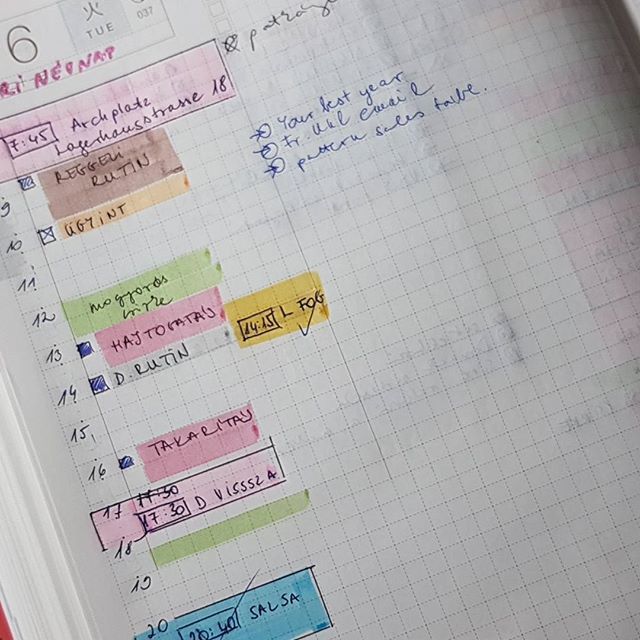 6
火
TUE
037
RI NÉVNAP
7:45 Archplatz
Lagerhausstrasse 18
Your best year
email
pattern sales table.
9
REGGELI
RUTIN
10
ÜGYINT
11
12
mogyorós
13
HAJTOGATÁS
14:15 L FOG
14
D. RUTIN
15
16
TAKARÍTÁS
17
17:30
17:30 D VISSSZA
18
19
20
20:40 SALSA